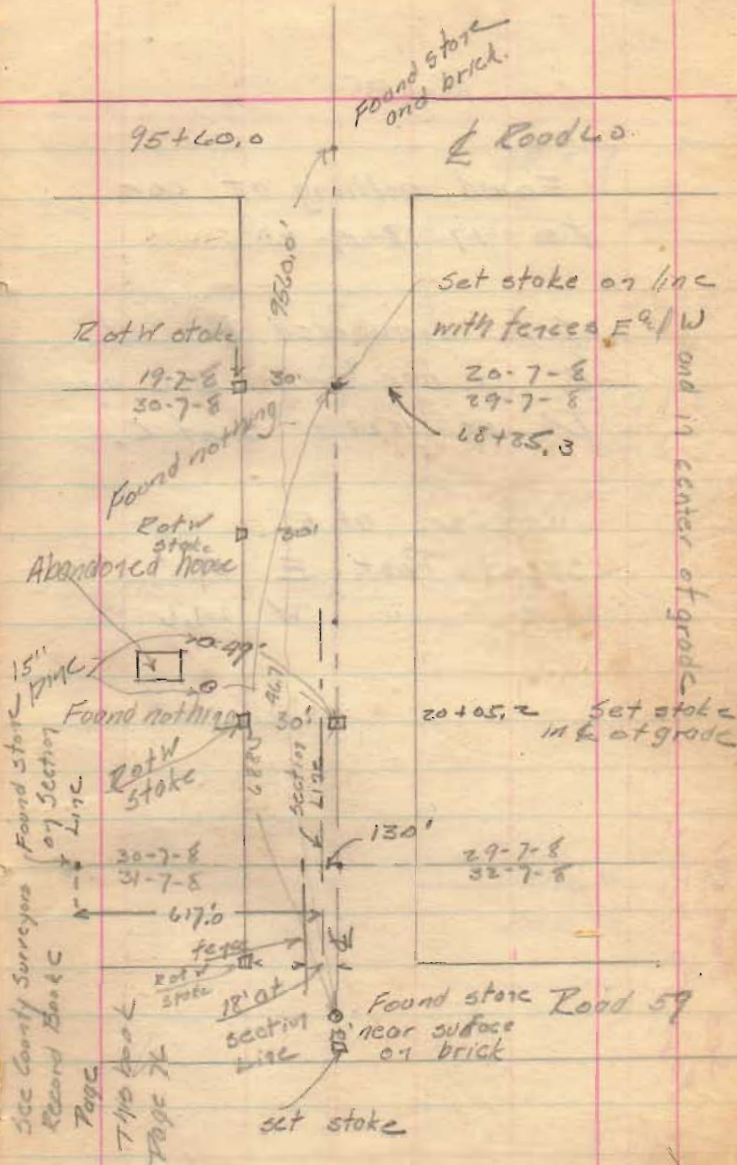 Found stone
and brick.
95+60.0
℄ Road 60.
9560.0'
Set stake on line
with fences E & W
and in center of grade
R of W stake
19-7-8
30-7-8
30'
20-7-8
29-7-8
68+85.3
Found nothing
R of W
stake
30'
Abandoned house
49'
15"
pine
Found nothing
30'
6885
467
20+05.2
Set stake
in ℄ of grade
R of W
stake
Section
Line
130'
Found stone
on Section
Line.
30-7-8
31-7-8
29-7-8
32-7-8
617.0
fence
℄
R of W
stake
18' at
section
Line
Found stone
near surface
on brick
Road 59
set stake
See County Surveyors
Record Book C
Page
This book
Page 76